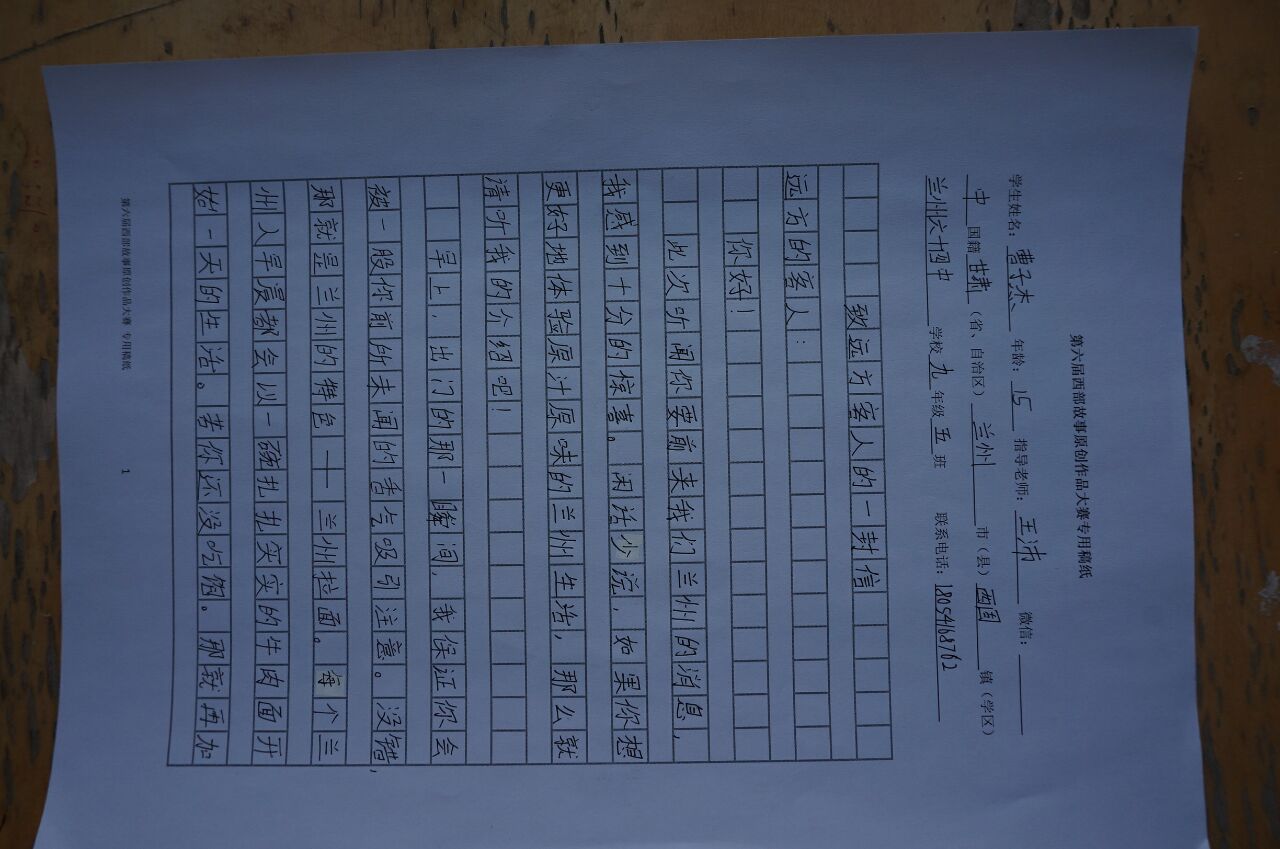 第六届西部故事原创作品大赛专用稿纸
学生姓名：曹子杰 年龄：15 指导老师：王沛 微信：
中 国籍 甘肃（省、自治区）兰州 市（县）西固 镇（学区）
兰州六十四中 学校 九 年级 五 班 联系电话：18054168762
致远方客人的一封信
远方的客人：
你好！
此次听闻你要前来我们兰州的消息，
我感到十分的惊喜。闲话少说，如果你想
更好地体验原汁原味的兰州生活，那么就
请听我的介绍吧！
早上，出门的那一瞬间，我保证你会
被一股你前所未闻的香气吸引注意。没错，
那就是兰州的特色——兰州拉面。每个兰
州人早晨都会以一碗扎扎实实的牛肉面开
始一天的生活。若你还没吃饱。那就再加
第六届西部故事原创作品大赛 专用稿纸 1